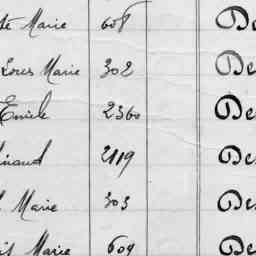 te Marie 608 De
Loves Marie 302 De
Emile 2360 De
inaud 2119 De
l Marie 303 De
is Marie 609 De